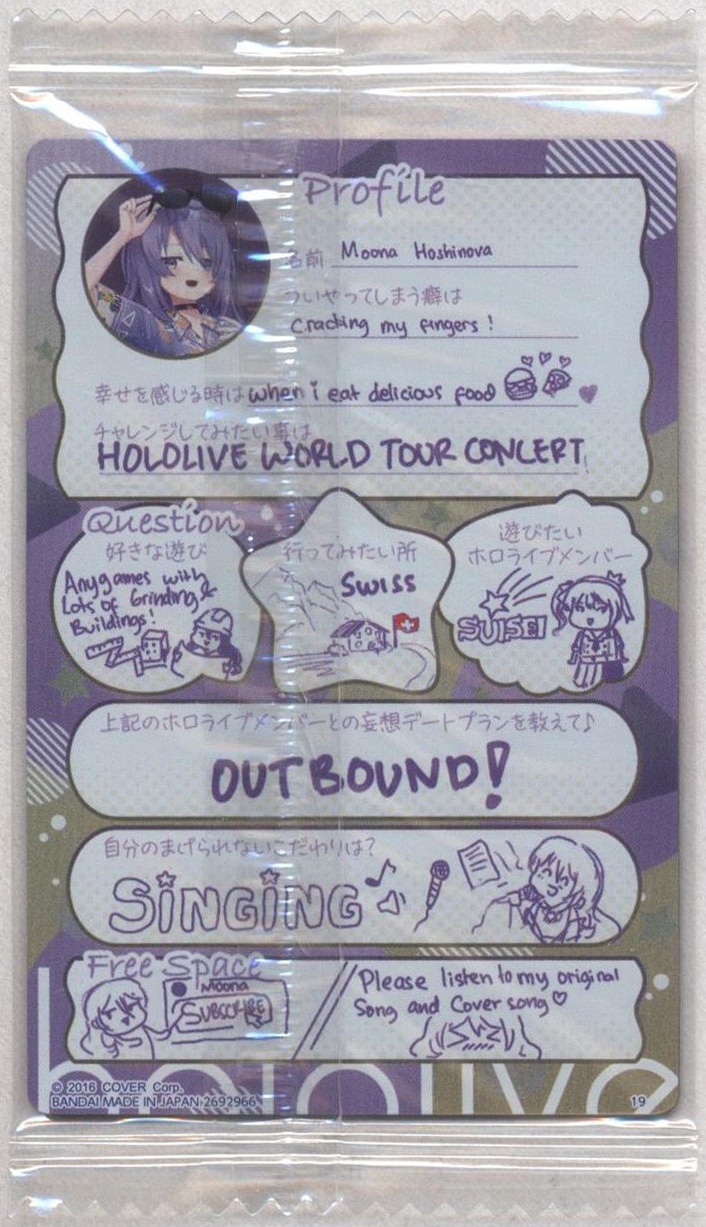 Profile
名前 Moona Hoshinova
ついやってしまう癖は
cracking my fingers !
幸せを感じる時は when i eat delicious food
チャレンジしてみたい事は
HOLOLIVE WORLD TOUR CONCERT!
Question
好きな遊び
Any games with
Lots of Grinding &
Buildings!
行ってみたい所
SWISS
遊びたい
ホロライブメンバー
SUISEI
上記のホロライブメンバーとの妄想デートプランを教えて♪
OUTBOUND!
自分のまげられないこだわりは?
SINGING
Free Space
Moona
SUBSCRIBE
Please listen to my original
Song and Cover song♡
hololive
© 2016 COVER Corp.
BANDAI MADE IN JAPAN 2692966
19